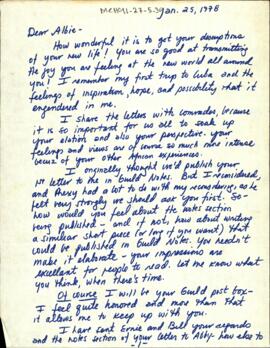 MCH91-27-5-39
Jan. 25, 1978
Dear Albie -
How wonderful it is to get your descriptions
of your new life! You are so good at transmitting
the joy you are feeling at the new world all around
you! I remember my first trip to Cuba and the
feelings of inspiration, hope, and possibility that it
engendered in me.
I share the letters with comrades, because
it is so important for us all to soak up
your elation and also your perspective. Your
feelings and views are of course so much more intense
becuz of your other African experiences.
I originally thought we'd publish your
1st letter to me in Guild Notes. But I reconsidered,
and Harry had a lot to do with my reconsidering, as he
felt very strongly we should ask you first. So-
how would you feel about the notes section
being published - and if not, how about writing
a similar short piece (or long if you want) that
could be published in Guild Notes. You needn't
make it elaborate - your impressions are
excellent for people to read. Let me know what
you think, when there's time.
Of course I will be your Guild post box-
I feel quite honored and more than that
it allows me to keep up with you.
I have sent Ernie and Bill your regards
and the notes section of your letter to Abby- how else to